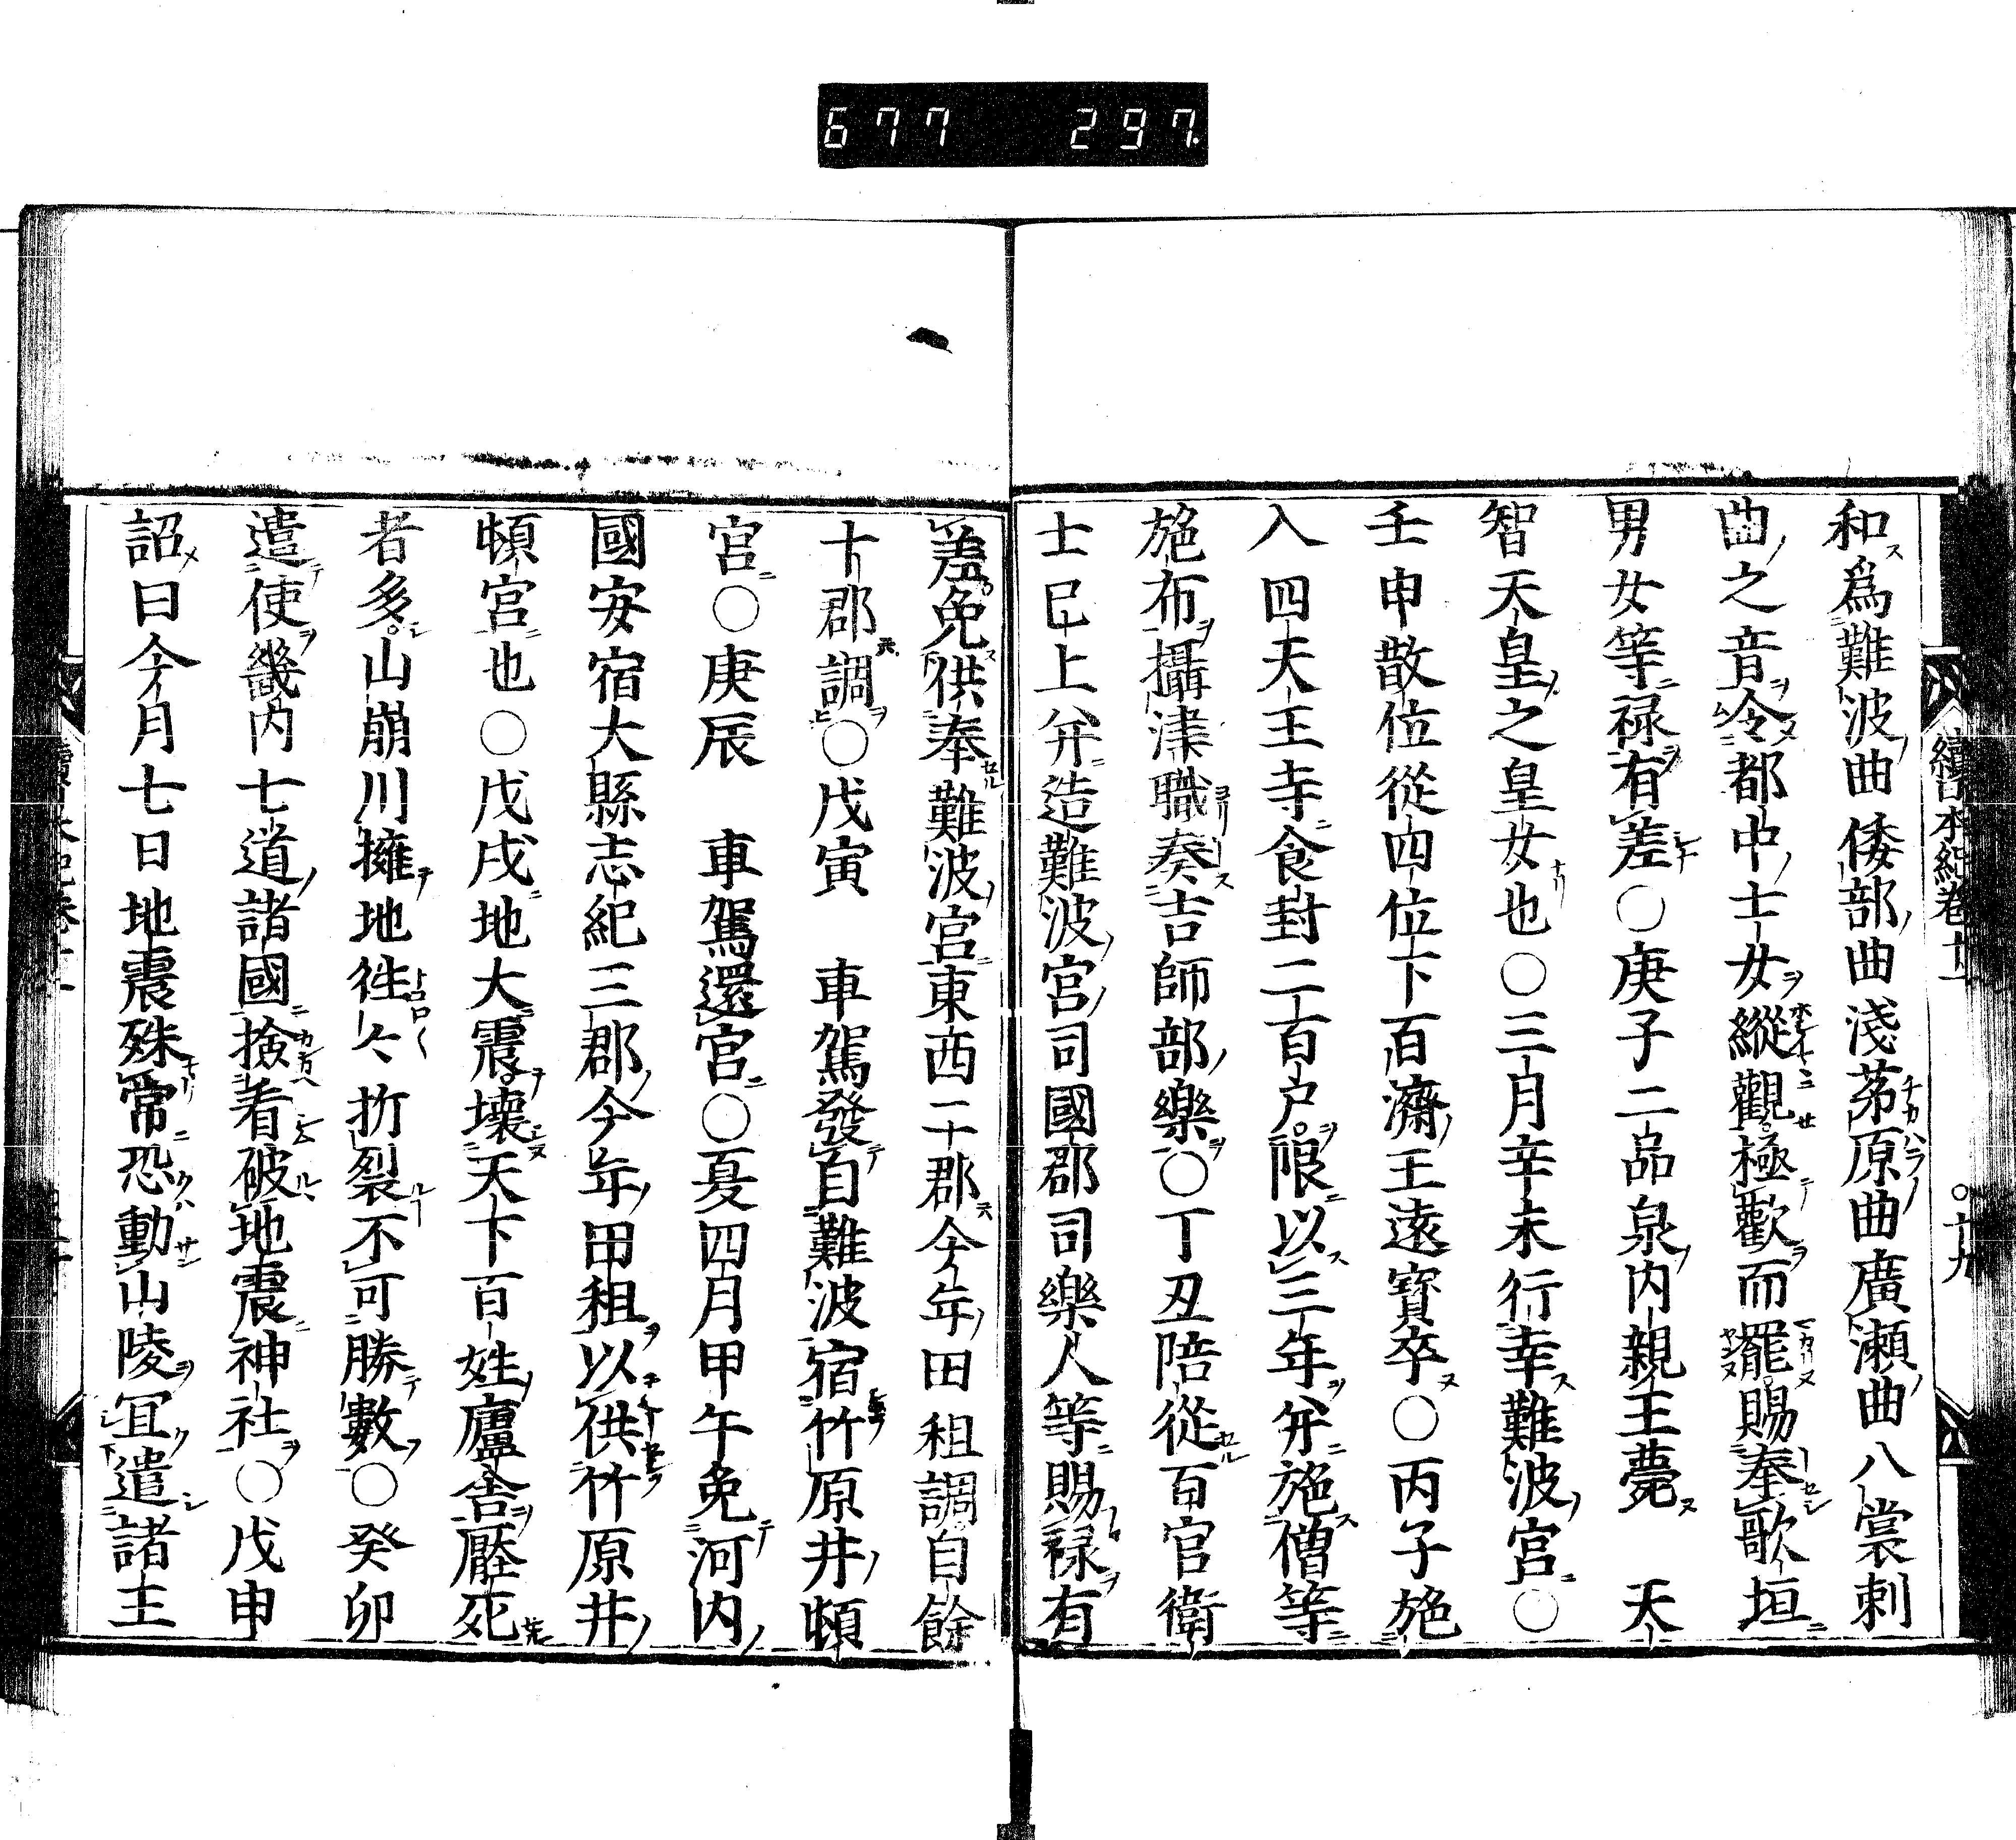 677 297
續日本紀卷十一
○十九
和爲難波曲倭部曲淺茅原曲廣瀬曲八裳刺
曲之音令都中士女縱觀極歡而罷賜奉歌垣
男女等禄有差○庚子二品泉内親王薨 天
智天皇之皇女也○三月辛未行幸難波宮○
壬申散位從四位下百濟王遠寳卒○丙子施
入四天王寺食封二百戸限以三年并施僧等
絁布攝津職奏吉師部樂○丁丑陪從百官衛
士已上并造難波宮司國郡司樂人等賜禄有
差免供奉難波宮東西二郡今年田租調自餘
十郡調○戊寅 車駕發自難波宿竹原井頓
宮○庚辰 車駕還宮○夏四月甲午免河内
國安宿大縣志紀三郡今年田租以供竹原井
頓宮也○戊戌地大震壞天下百姓廬舎壓死
者多山崩川擁地徃々折裂不可勝數○癸卯
遣使畿内七道諸國撿看破地震神社○戊申
詔曰今月七日地震殊常恐動山陵冝遣諸王